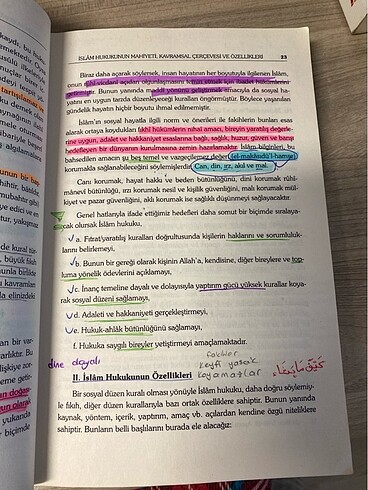 İSLÂM HUKUKUNUN MAHİYETİ, KAVRAMSAL ÇERÇEVESİ VE ÖZELLİKLERİ 23
Biraz daha açarak söylersek, insan hayatının her boyutuyla ilgilenen İslâm,
onun açıdan olgunlaşmasını temin etmek için ibadet hükümlerini
getirmiştir. Bunun yanında maddî yönünü geliştirmek amacıyla da sosyal ha-
yatını en uygun tarzda düzenleyeceği kuralları öngörmüştür. Böylece yaşanılan
gündelik hayatın hiçbir boyutu ihmal edilmemiştir.
İslâm'ın sosyal hayatla ilgili norm ve önerileri ile fakihlerin bunları esas
alarak ortaya koydukları fıkhî hükümlerin nihaî amacı, bireyin yaratılış değerle-
rine uygun, adalet ve hakkaniyet esaslarına bağlı, sağlık, huzur, güven ve barışı
hedefleyen bir dünyanın kurulmasına zemin hazırlamaktır. İslâm bilginleri, bu
bahsedilen amacın şu beş temel ve vazgeçilemez değeri (el-makâsıdü'l-hamse)
korumakla sağlanabileceğini söylemişlerdir: Can, din, ırz, akıl ve mal.
Canı korumak, hayat hakkı ve beden bütünlüğünü, dini korumak rûhî-
mânevî bütünlüğü, ırzı korumak nesil ve kişilik güvenliğini, malı korumak mül-
kiyet ve pazar güvenliğini, aklı korumak ise sağlıklı düşünmeyi sağlayacaktır.
Genel hatlarıyla ifade ettiğimiz hedefleri daha somut bir biçimde sıralaya-
cak olursak İslâm hukuku,
a. Fıtrat/yaratılış kuralları doğrultusunda kişilerin haklarını ve sorumluluk-
larını belirlemeyi,
b. Bunun bir gereği olarak kişinin Allah'a, kendisine, diğer bireylere ve top-
luma yönelik ödevlerini açıklamayı,
c. İnanç temeline dayalı ve dolayısıyla yaptırım gücü yüksek kurallar koya-
rak sosyal düzeni sağlamayı,
d. Adaleti ve hakkaniyeti gerçekleştirmeyi,
e. Hukuk-ahlâk bütünlüğünü sağlamayı,
f. Hukuka saygılı bireyler yetiştirmeyi amaçlamaktadır.
dine dayalı
fakihler
keyfi yasak
koyamazlar
II. İslâm Hukukunun Özellikleri
Bir sosyal düzen kuralı olması yönüyle İslâm hukuku, daha doğru söylemiy-
le fıkıh, diğer düzen kurallarıyla bazı ortak özelliklere sahiptir. Bunun yanında
kaynak, yöntem, içerik, yaptırım, amaç vb. açılardan kendine özgü niteliklere
sahiptir. Bunların belli başlılarını burada ele alacağız: